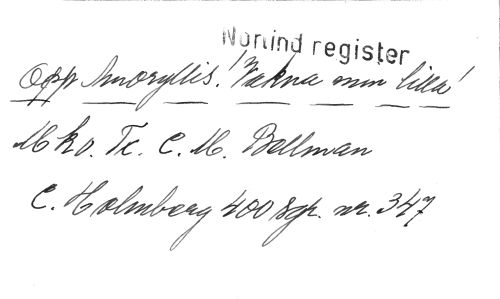 Norlind register
Opp Amaryllis! Vakna min lilla!
Mko. Tc. C. M. Bellman
C. Holmberg 400 sgr. nr. 347